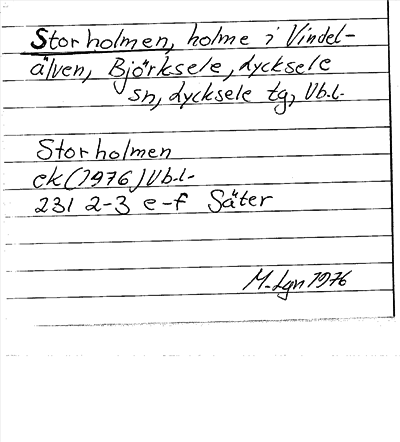 Storholmen, holme i Vindel-
älven, Björksele, Lycksele
sn, Lycksele tg, Vb.l.
Storholmen
ek (1976) Vb.l.
231 2-3 e-f Säter
M. Lgn 1976